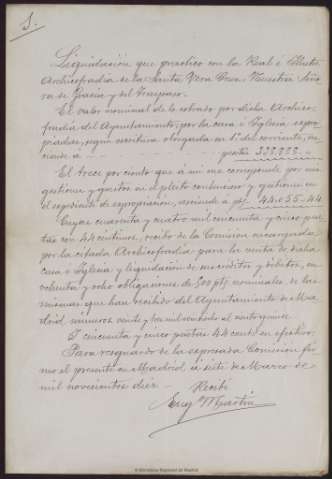 1.
Liquidación que practico con la Real é Ilustre
Archicofradía de la Santa Vera Cruz, Nuestra Seño
ra de Gracia y del Traspaso.
El valor nominal de lo cobrado por dicha Archico-
fradía del Ayuntamiento, por la casa é Iglesia expro
piadas, según escritura otorgada en 1º del corriente, as
ciende a - - - pesetas
El trece por ciento que á mi me corresponde por mis
gestiones y gastos en el pleito contencioso y gestiones en
el expediente de expropiación, asciende a pts 44.055-44
Cuyas cuarenta y cuatro mil cincuenta y cinco pese
tas con 44 céntimos, recibo de la Comisión encargada
por la citada Archicofradía para la venta de dicha
casa é Iglesia y liquidación de sus créditos y débitos, en
ochenta y ocho obligaciones de 500 pts nominales de las
mismas que han recibido del Ayuntamiento de Ma
drid números veinte y tres mil
Y cincuenta y cinco pesetas 44 cents en efectivo.
Para resguardo de la expresada Comisión fir
mo el presente en Madrid á siete de Marzo de
mil novecientos diez. - Recibí
Eug Martin
Biblioteca Regional de Madrid